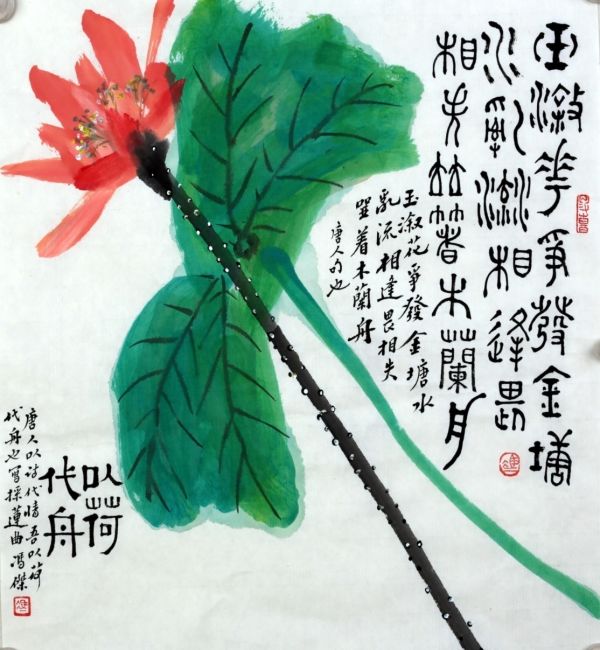 玉溆花爭發金塘
水亂流相逢畏
相失竝箸木蘭舟
玉溆花爭發金塘水
亂流相逢畏相失
竝着木蘭舟
唐人句也
以荷
代舟
唐人以詩代情吾以荷
代舟也寫採蓮曲馮傑